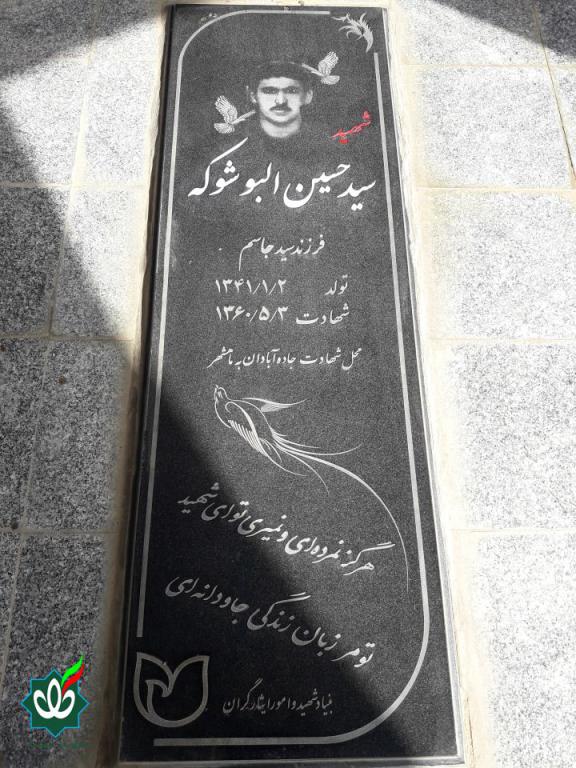 شهید
سید حسین البوشوکه
فرزند سید جاسم
تولد ۱۳۴۱/۱/۲
شهادت ۱۳۶۰/۵/۳
محل شهادت جاده آبادان به ماهشهر
هرگز نمرده‌ای و نمیری تو ای شهید
تو مرزبان زندگی جاودانه‌ای
بنیاد شهید و امور ایثارگران